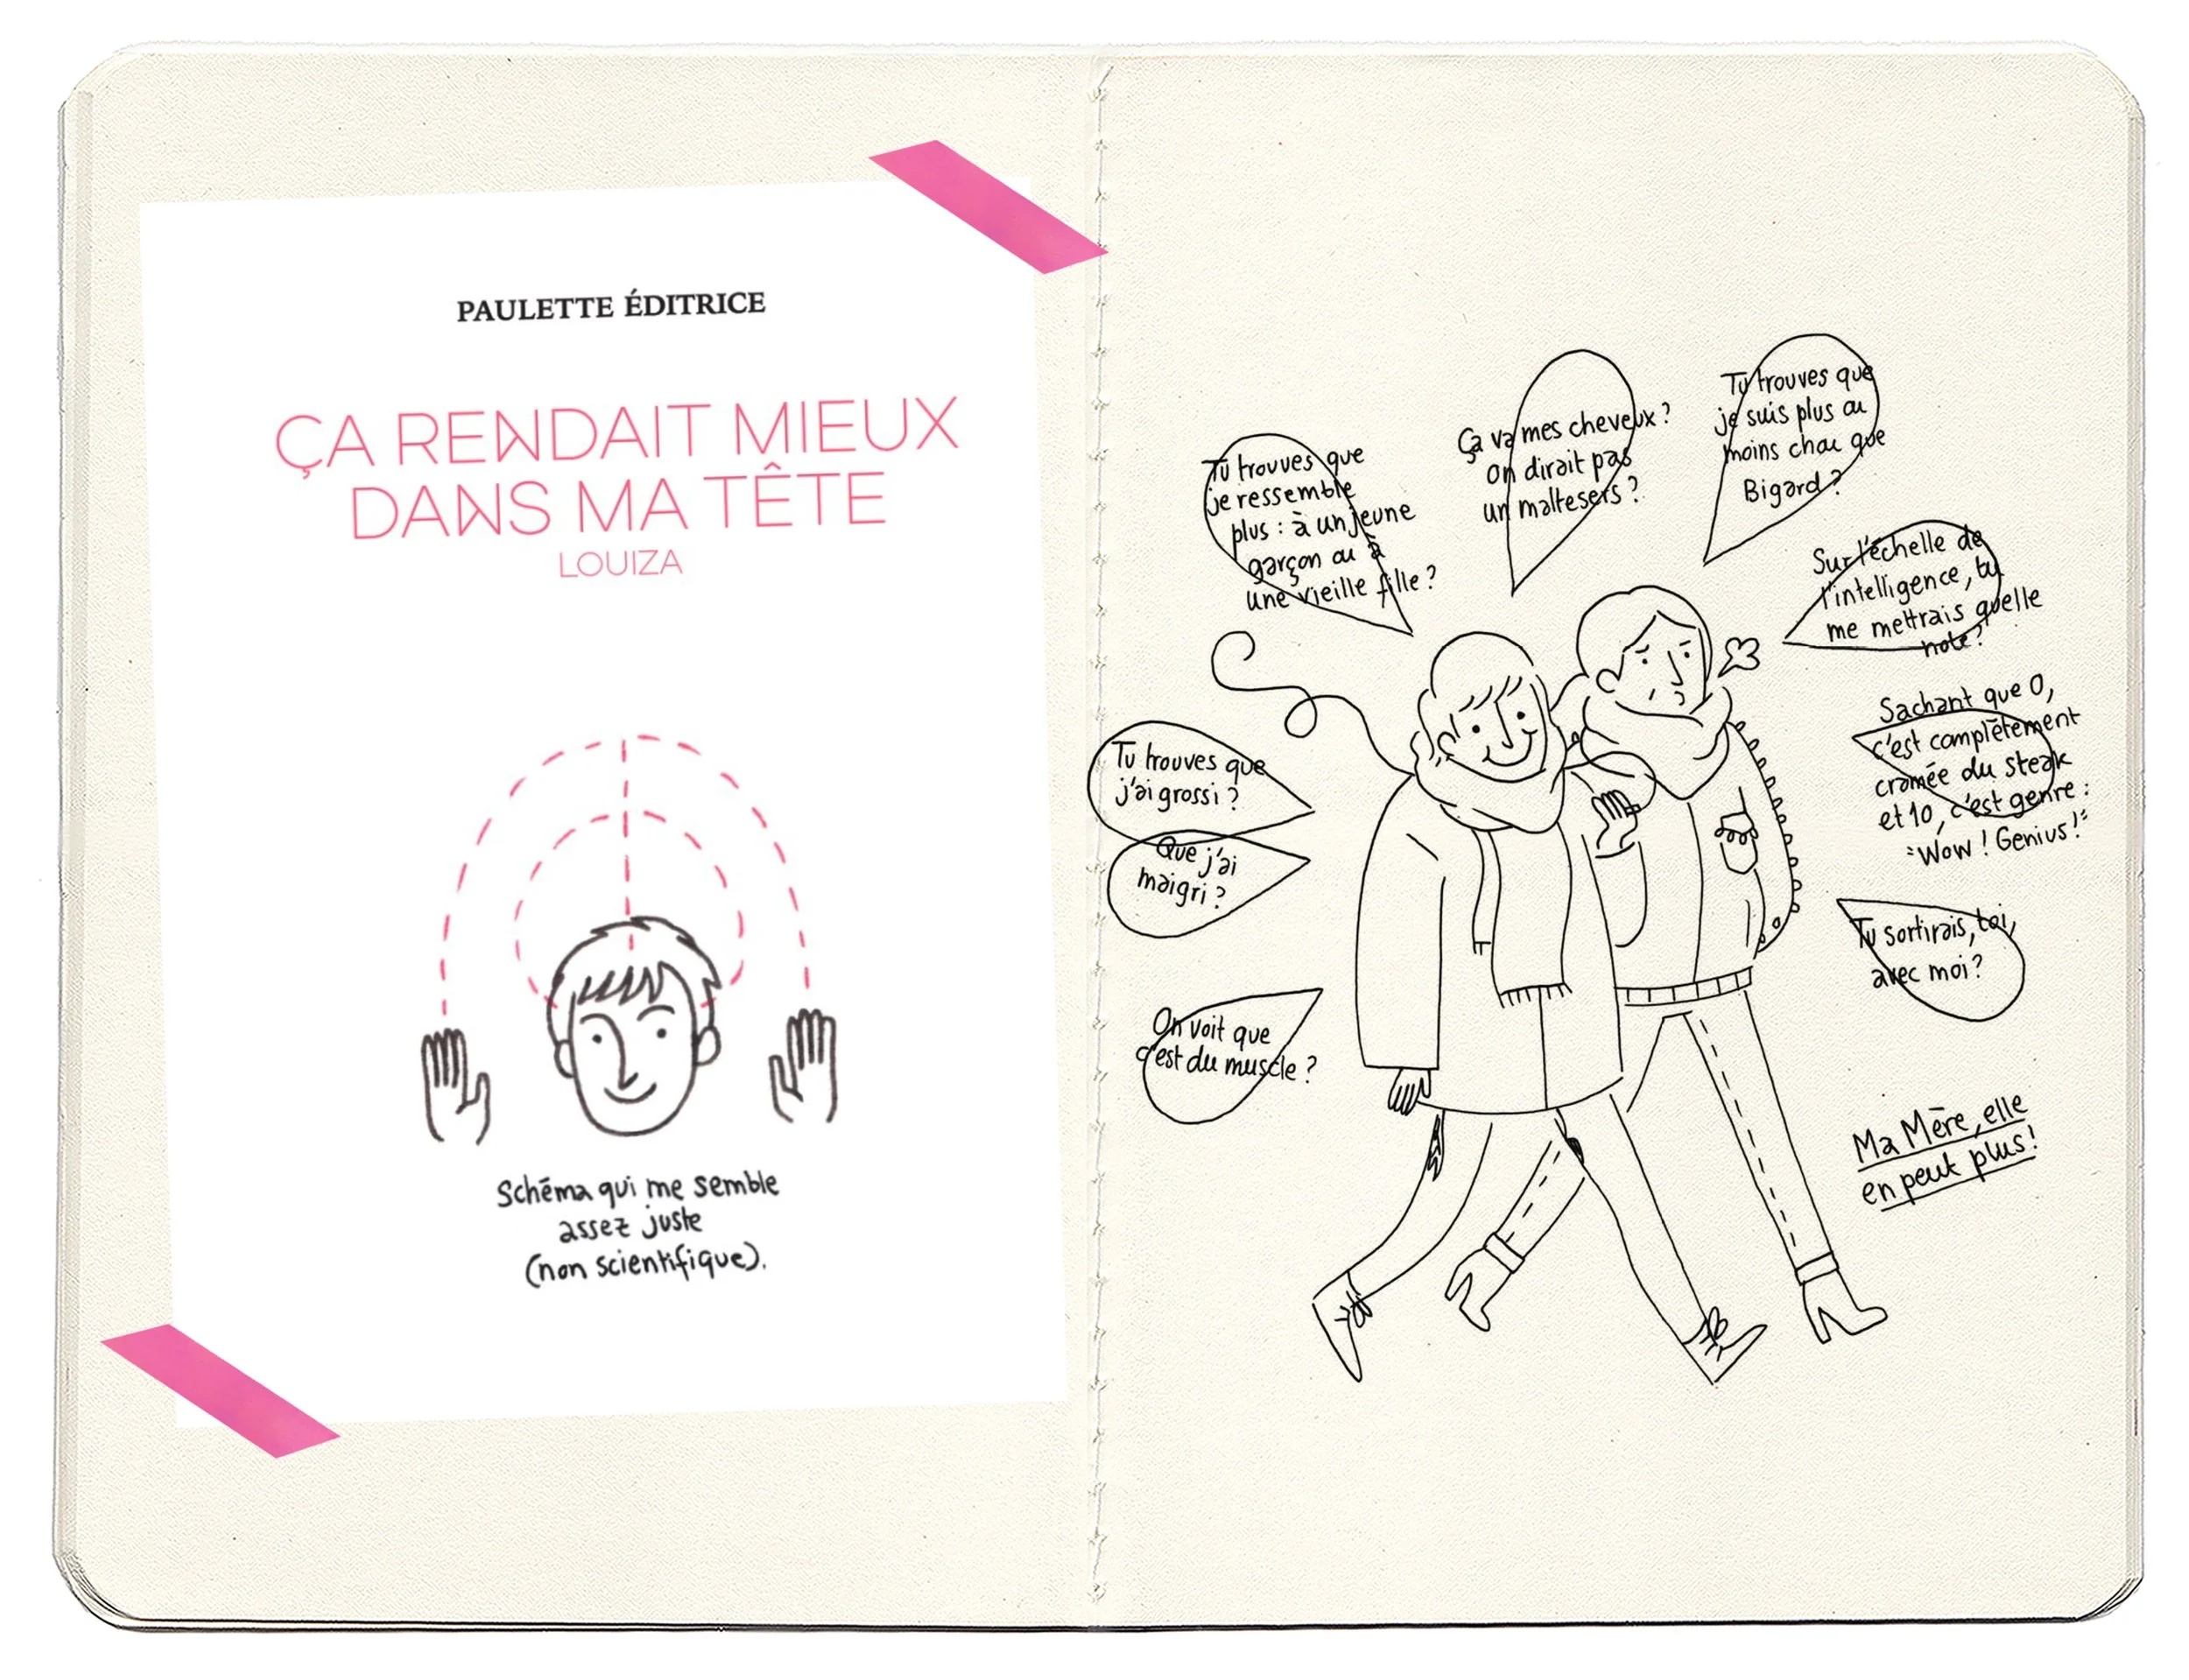 PAULETTE ÉDITRICE
ÇA RENDAIT MIEUX
DANS MA TÊTE
LOUIZA
Schéma qui me semble
assez juste
(non scientifique).
Tu trouves que
je ressemble
plus : à un jeune
garçon ou à
une vieille fille ?
Ça va mes cheveux ?
On dirait pas
un maltesers ?
Tu trouves que
je suis plus ou
moins chou que
Bigard ?
Sur l'échelle de
l'intelligence, tu
me mettrais quelle
note ?
Sachant que 0,
c'est complètement
cramée du steak
et 10, c'est genre :
"Wow ! Genius !"
Tu trouves que
j'ai grossi ?
Que j'ai
maigri ?
On voit que
c'est du muscle ?
Tu sortirais, toi,
avec moi ?
Ma Mère, elle
en peut plus !